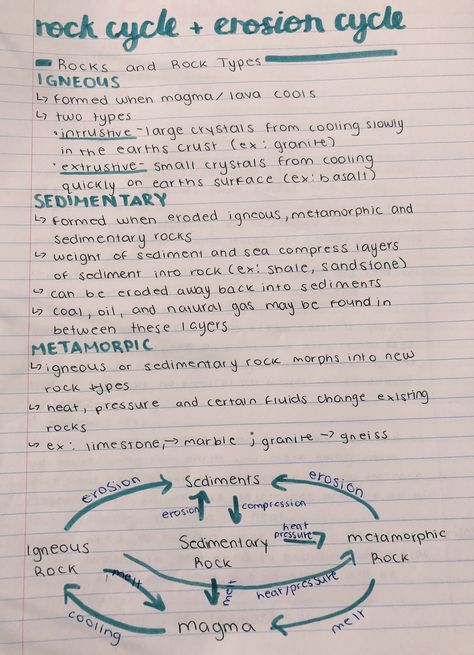 rock cycle + erosion cycle
Rocks and Rock Types
IGNEOUS
↳ formed when magma/lava cools
↳ two types
• intrustive - large crystals from cooling slowly
in the earths crust (ex: granite)
• extrustive - small crystals from cooling
quickly on earths surface (ex: basalt)
SEDIMENTARY
↳ formed when eroded igneous, metamorphic and
sedimentary rocks
↳ weight of sediment and sea compress layers
of sediment into rock (ex: shale, sandstone)
↳ can be eroded away back into sediments
↳ coal, oil, and natural gas may be found in
between these layers
METAMORPIC
↳ igneous or sedimentary rock morphs into new
rock types
↳ heat, pressure and certain fluids change existing
rocks
↳ ex: limestone, → marble ; granite → gneiss
erosion
Sediments
erosion
erosion
compression
Igneous
Rock
Sedimentary
Rock
heat
pressure
metamorphic
Rock
melt
melt
heat/pressure
cooling
magma
melt